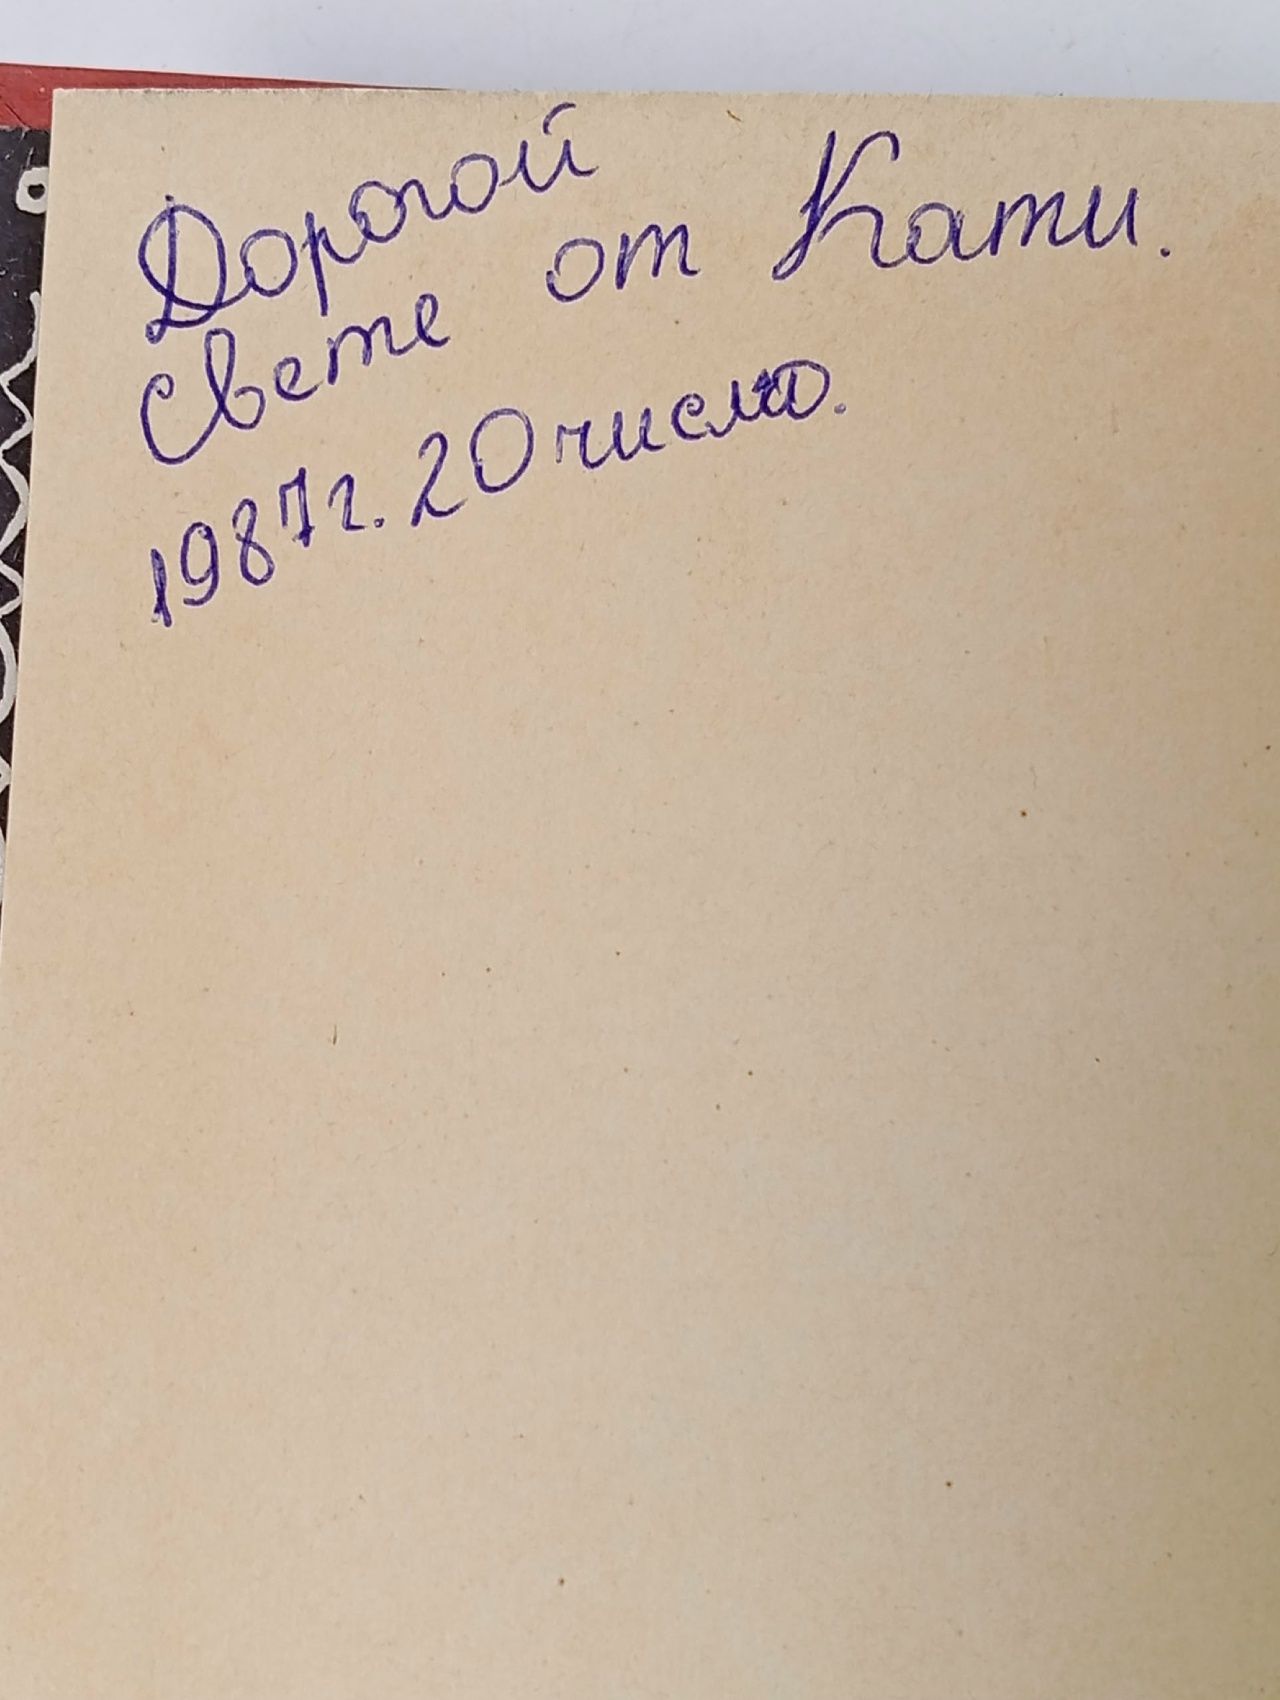 Дорогой
Свете от Кати.
1987г. 20 число.